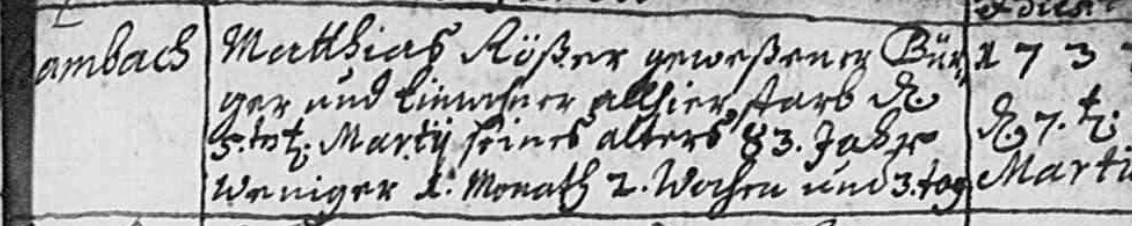 ambach
Matthias Rößer geweßener Bür,
ger und Einwohner allhier, starb d.
5.ten Martÿ seines alters 83. Jahr
weniger 1. Monath 2. Wochen und 3. tag
173
d. 7. t.
Marti